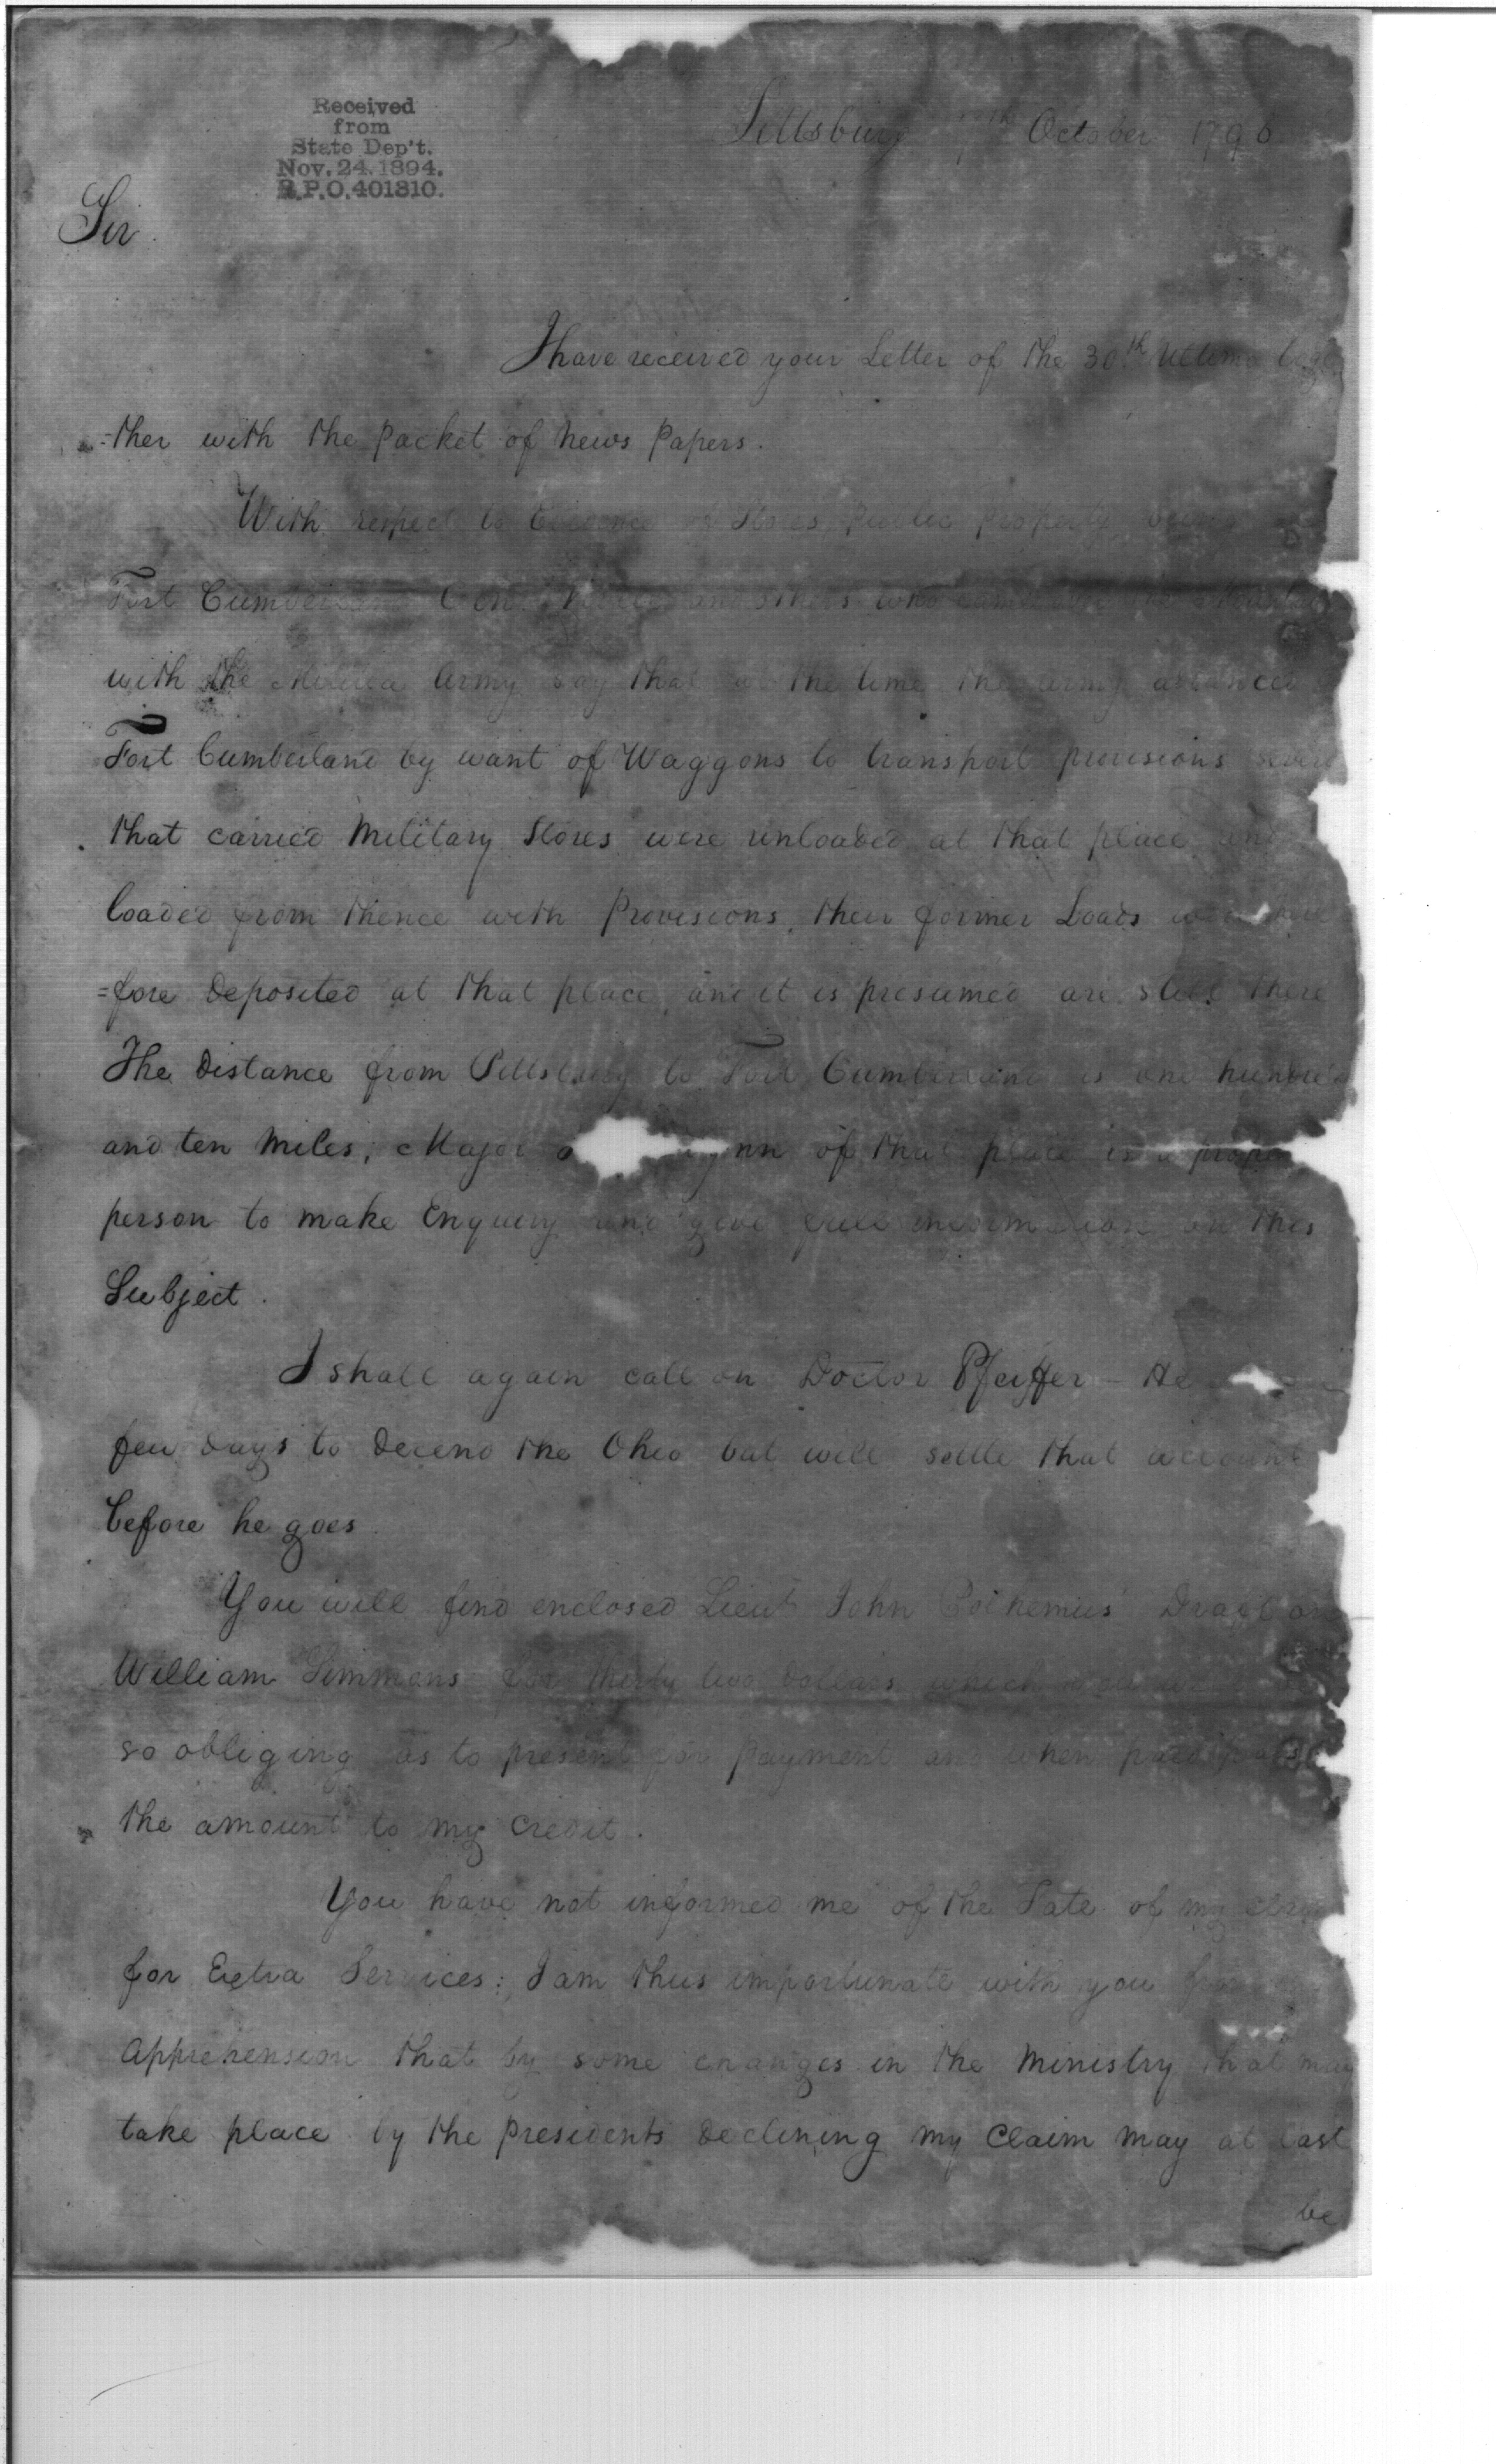 Received
from
State Dep't.
Nov. 24. 1894.
R.P.O. 401310.
Pittsburg 7th October 1796
Sir
I have received your Letter of the 30th Ultimo toge
=ther with the packet of News Papers.
With respect to Evidence of Stores public property being
Fort Cumberland who came
with the Militia Army say that at the time the army advanced
Fort Cumberland by want of Waggons to transport provisions several
that carried Military Stores were unloaded at that place and
loaded from thence with Provisions, their former Loads were
=fore deposited at that place, and it is presumed are still there
The Distance from Pittsburg to Fort Cumberland is one hundred
and ten Miles; Major of that place is a proper
person to make Enquiry and give full information on this
Subject.
I shall again call on Doctor Pfeiffer - He
few days to decend the Ohio but will settle that account
before he goes
You will find enclosed Lieut John Polhemus' Draft on
William Simmons for thirty two Dollars which
so obliging as to present for payment and when paid pass
the amount to my Credit.
You have not informed me of the Fate of my
for Extra Services: I am thus importunate with you from
apprehension that by some changes in the Ministry that may
take place by the Presidents declining my Claim may at last
be